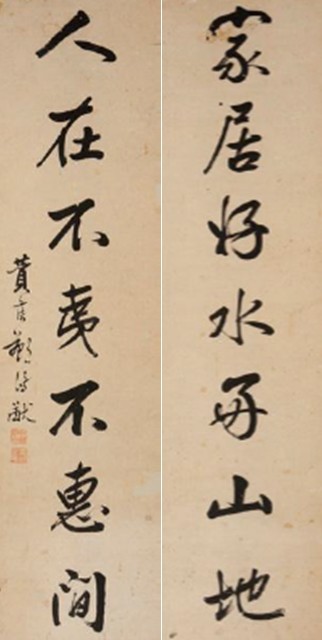 家居好水好山地
人在不夷不惠間